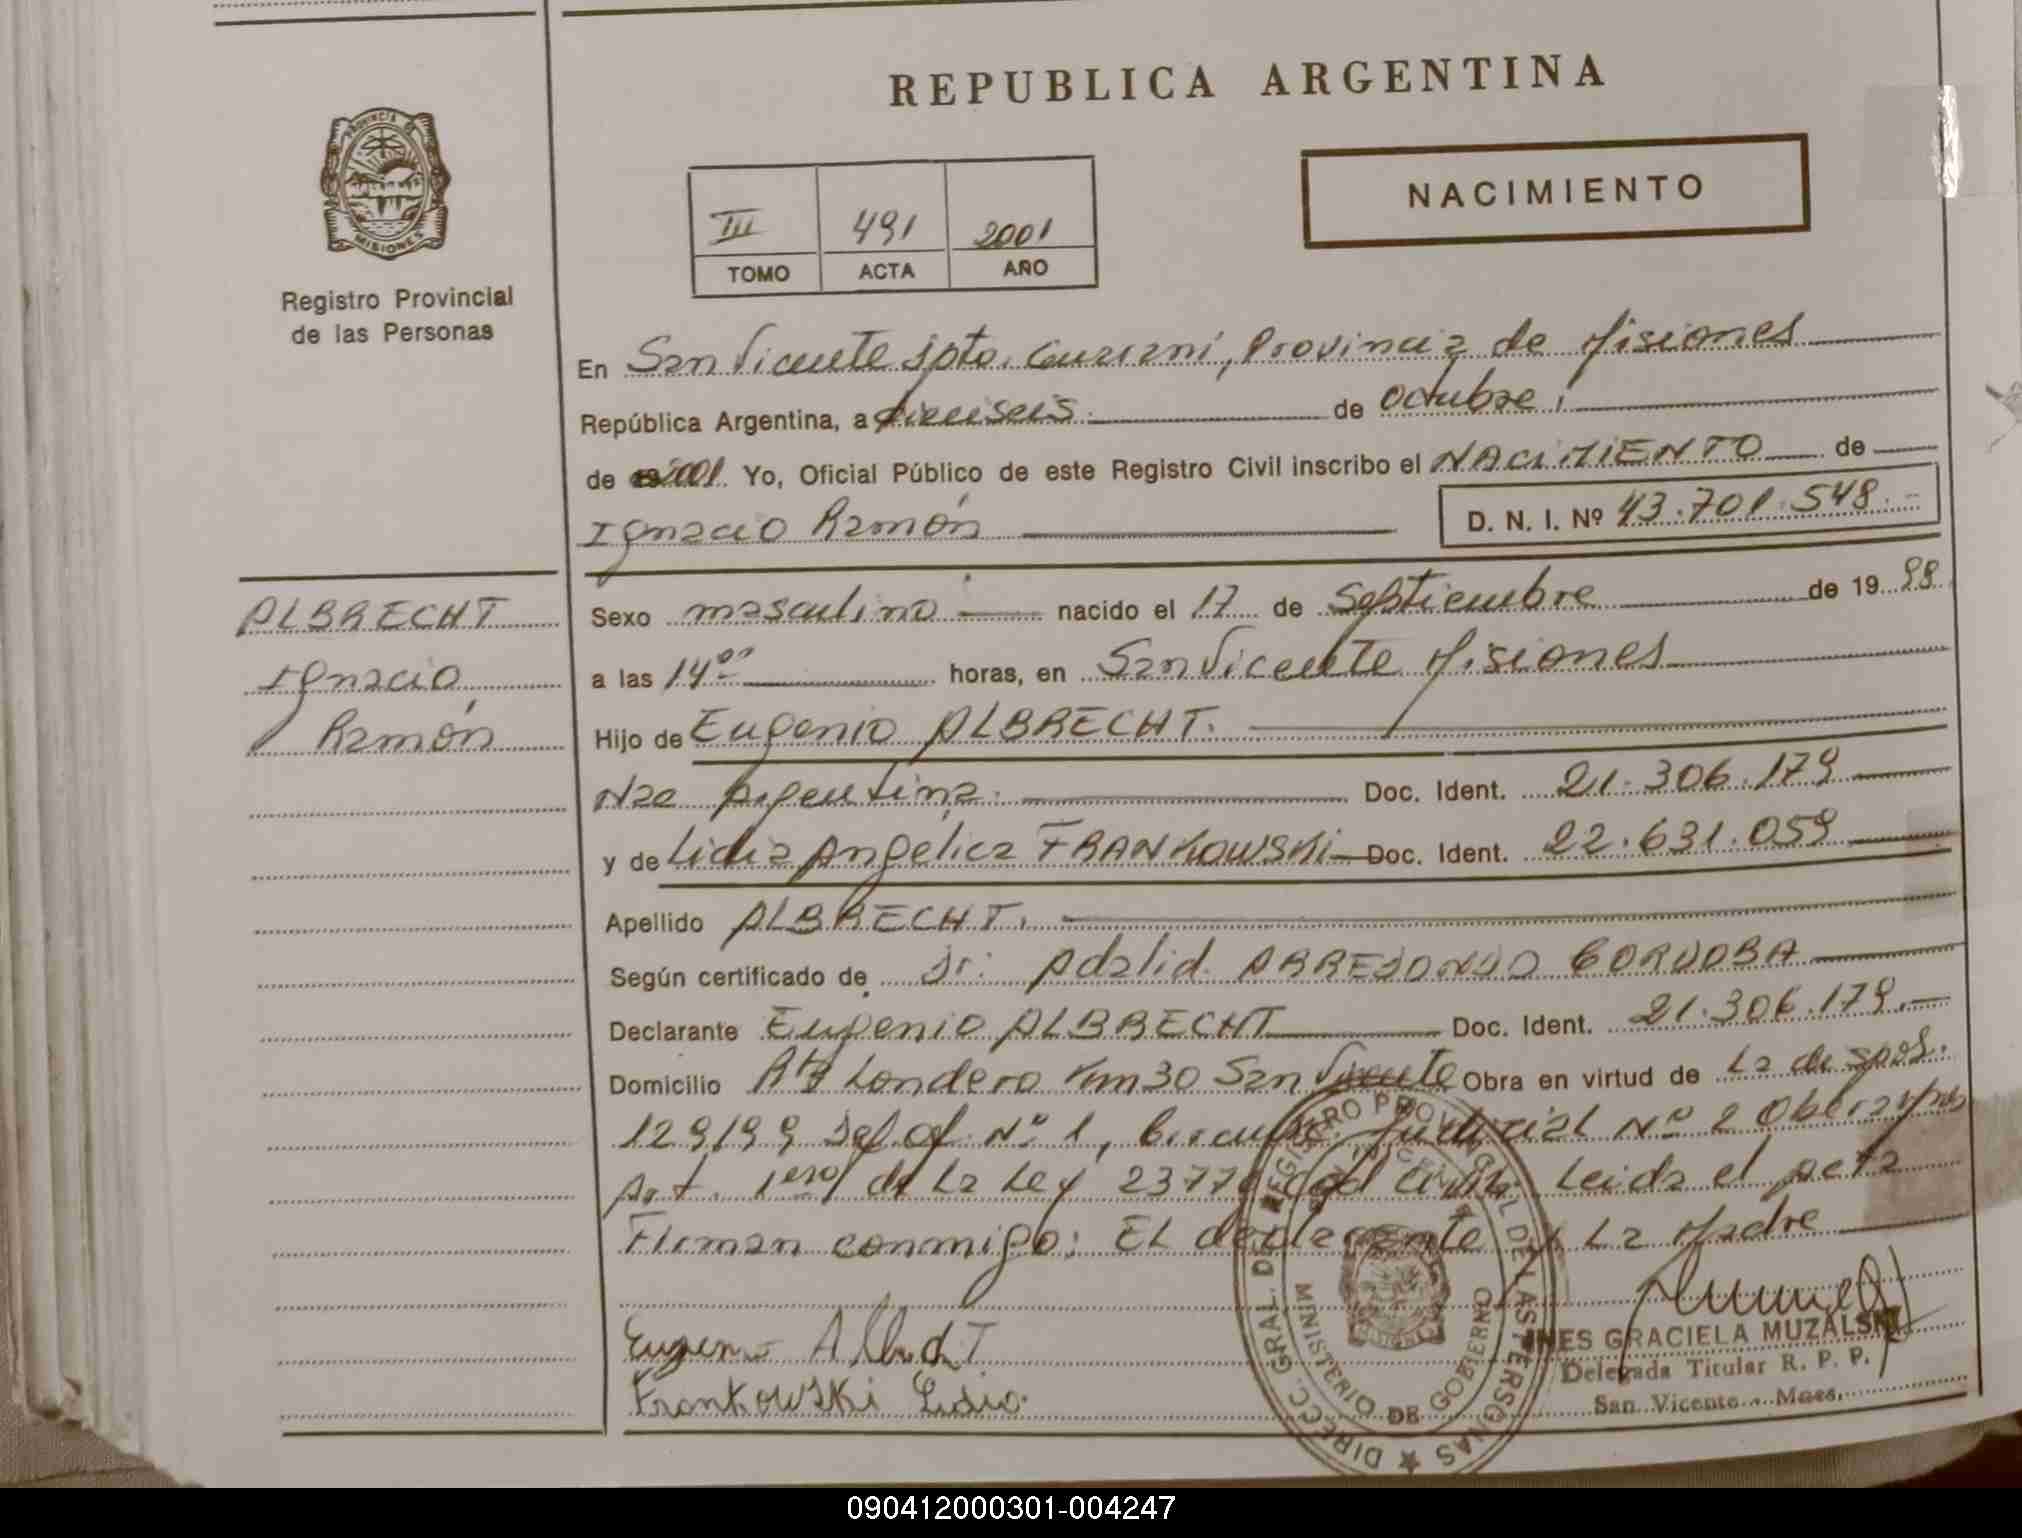 REPUBLICA ARGENTINA
PROVINCIA DE
MISIONES
Registro Provincial
de las Personas
NACIMIENTO
III 491 2001
TOMO ACTA AÑO
En San Vicente Dpto. Guaraní, Provincia de Misiones
República Argentina, a dieciseis de Octubre,
de 2001 Yo, Oficial Público de este Registro Civil inscribo el NACIMIENTO de
Ignacio Ramón D. N. I. Nº 43.701.548.-
ALBRECHT
Ignacio
Ramón
Sexo masculino nacido el 17 de Septiembre de 19 98
a las 14⁰⁰ horas, en San Vicente Misiones
Hijo de Eugenio ALBRECHT.
Nac Argentina. Doc. Ident. 21.306.179
y de Lidia Angélica FRANKOWSKI Doc. Ident. 22.631.059
Apellido ALBRECHT.
Según certificado de Dr. Adalid ARREDONDO CORDOBA
Declarante Eugenio ALBRECHT Doc. Ident. 21.306.179.-
Domicilio Londero Km 30 San Vicente Obra en virtud de La
129/99 Nº 1, Nº 2 Obera
Art. 1 de La Ley Leida el acta
Firman conmigo: EL declarante y La Madre
Eugenio Albrecht
Frankowski Lidia
DIRECC. GRAL. DE REGISTRO PROVINCIAL DE LAS PERSONAS
MINISTERIO DE GOBIERNO
INES GRACIELA MUZALSKI
Delegada Titular R. P. P.
San Vicente - Mnes.
090412000301-004247